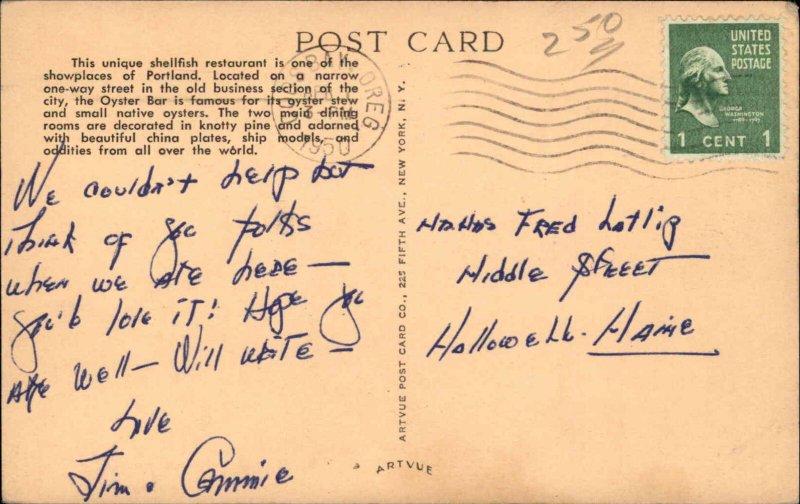 POST CARD
250
This unique shellfish restaurant is one of the
showplaces of Portland. Located on a narrow
one-way street in the old business section of the
city, the Oyster Bar is famous for its oyster stew
and small native oysters. The two main dining
rooms are decorated in knotty pine and adorned
with beautiful china plates, ship models, and
oddities from all over the world.
OREG
1950
UNITED
STATES
POSTAGE
GEORGE
WASHINGTON
1 CENT 1
We couldn't help but
think of you folks
when we ate here —
you'd love it! Hope you
are well — Will write —
Love
Jim & Connie
ARTVUE POST CARD CO., 225 FIFTH AVE., NEW YORK, N. Y.
Fred
Middle Street
Hallowell. Maine
ARTVUE